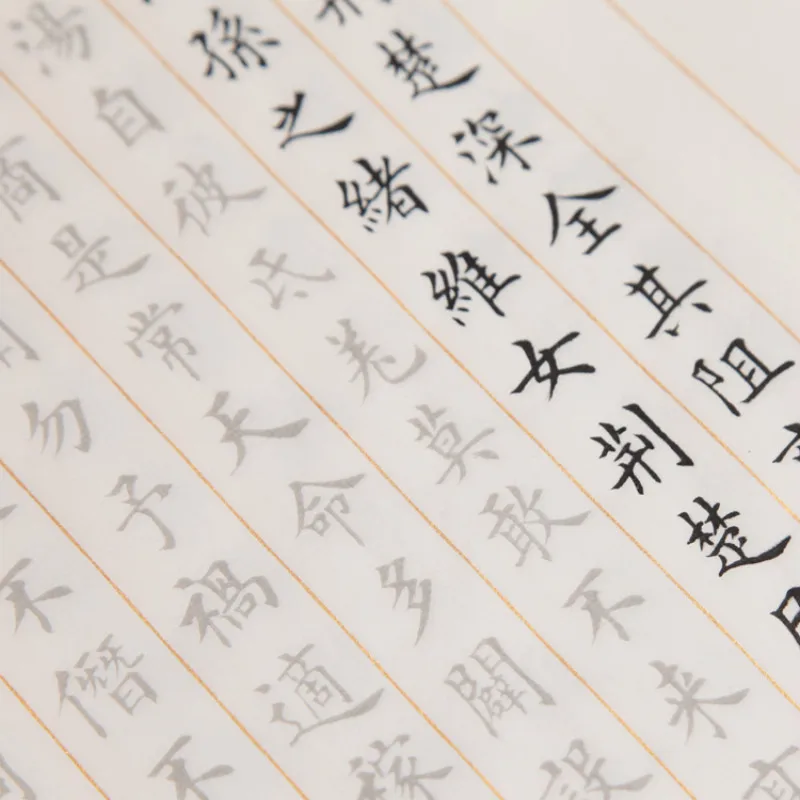 荊楚深全其阻
孫之緒維女荊楚
湯自彼氐羌莫敢不来
商是常天命多闢設
勿予禍適稼
不僭不